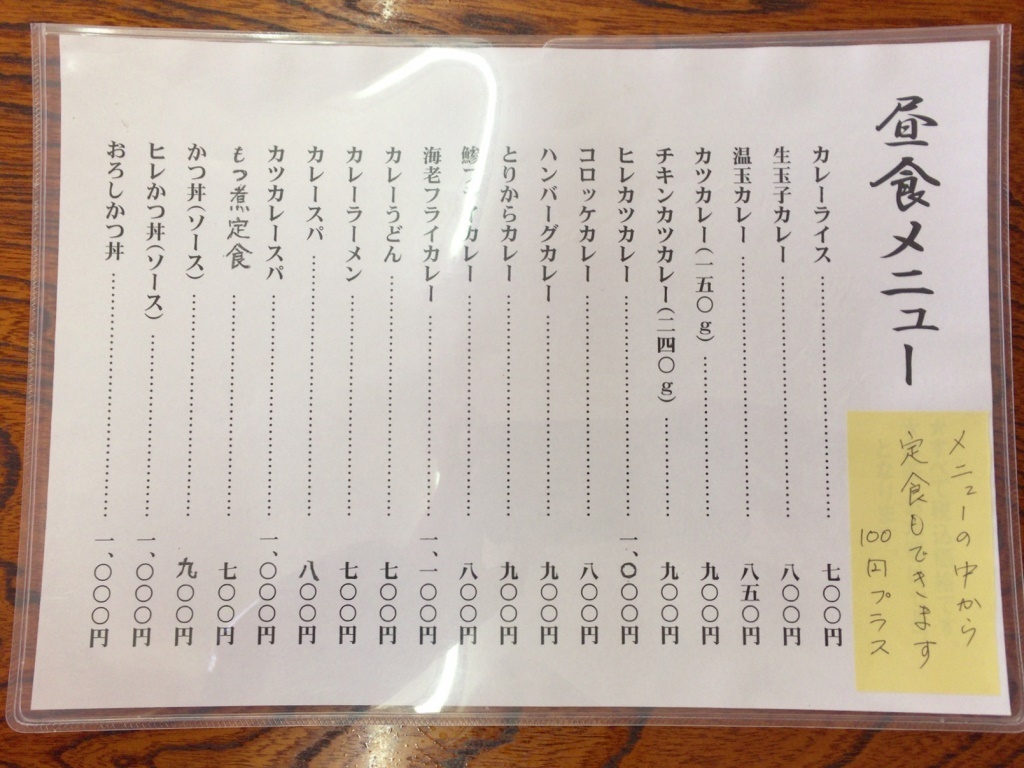 昼食メニュー
メニューの中から
定食もできます
100円プラス
カレーライス………七〇〇円
生玉子カレー………八〇〇円
温玉カレー………八五〇円
カツカレー(一五〇g)………九〇〇円
チキンカツカレー(二四〇g)………九〇〇円
ヒレカツカレー………一、〇〇〇円
コロッケカレー………八〇〇円
ハンバーグカレー………九〇〇円
とりからカレー………九〇〇円
鯵フライカレー………八〇〇円
海老フライカレー………一、一〇〇円
カレーうどん………七〇〇円
カレーラーメン………七〇〇円
カレースパ………八〇〇円
カツカレースパ………一、〇〇〇円
もつ煮定食………七〇〇円
かつ丼(ソース)………九〇〇円
ヒレかつ丼(ソース)………一、〇〇〇円
おろしかつ丼………一、〇〇〇円